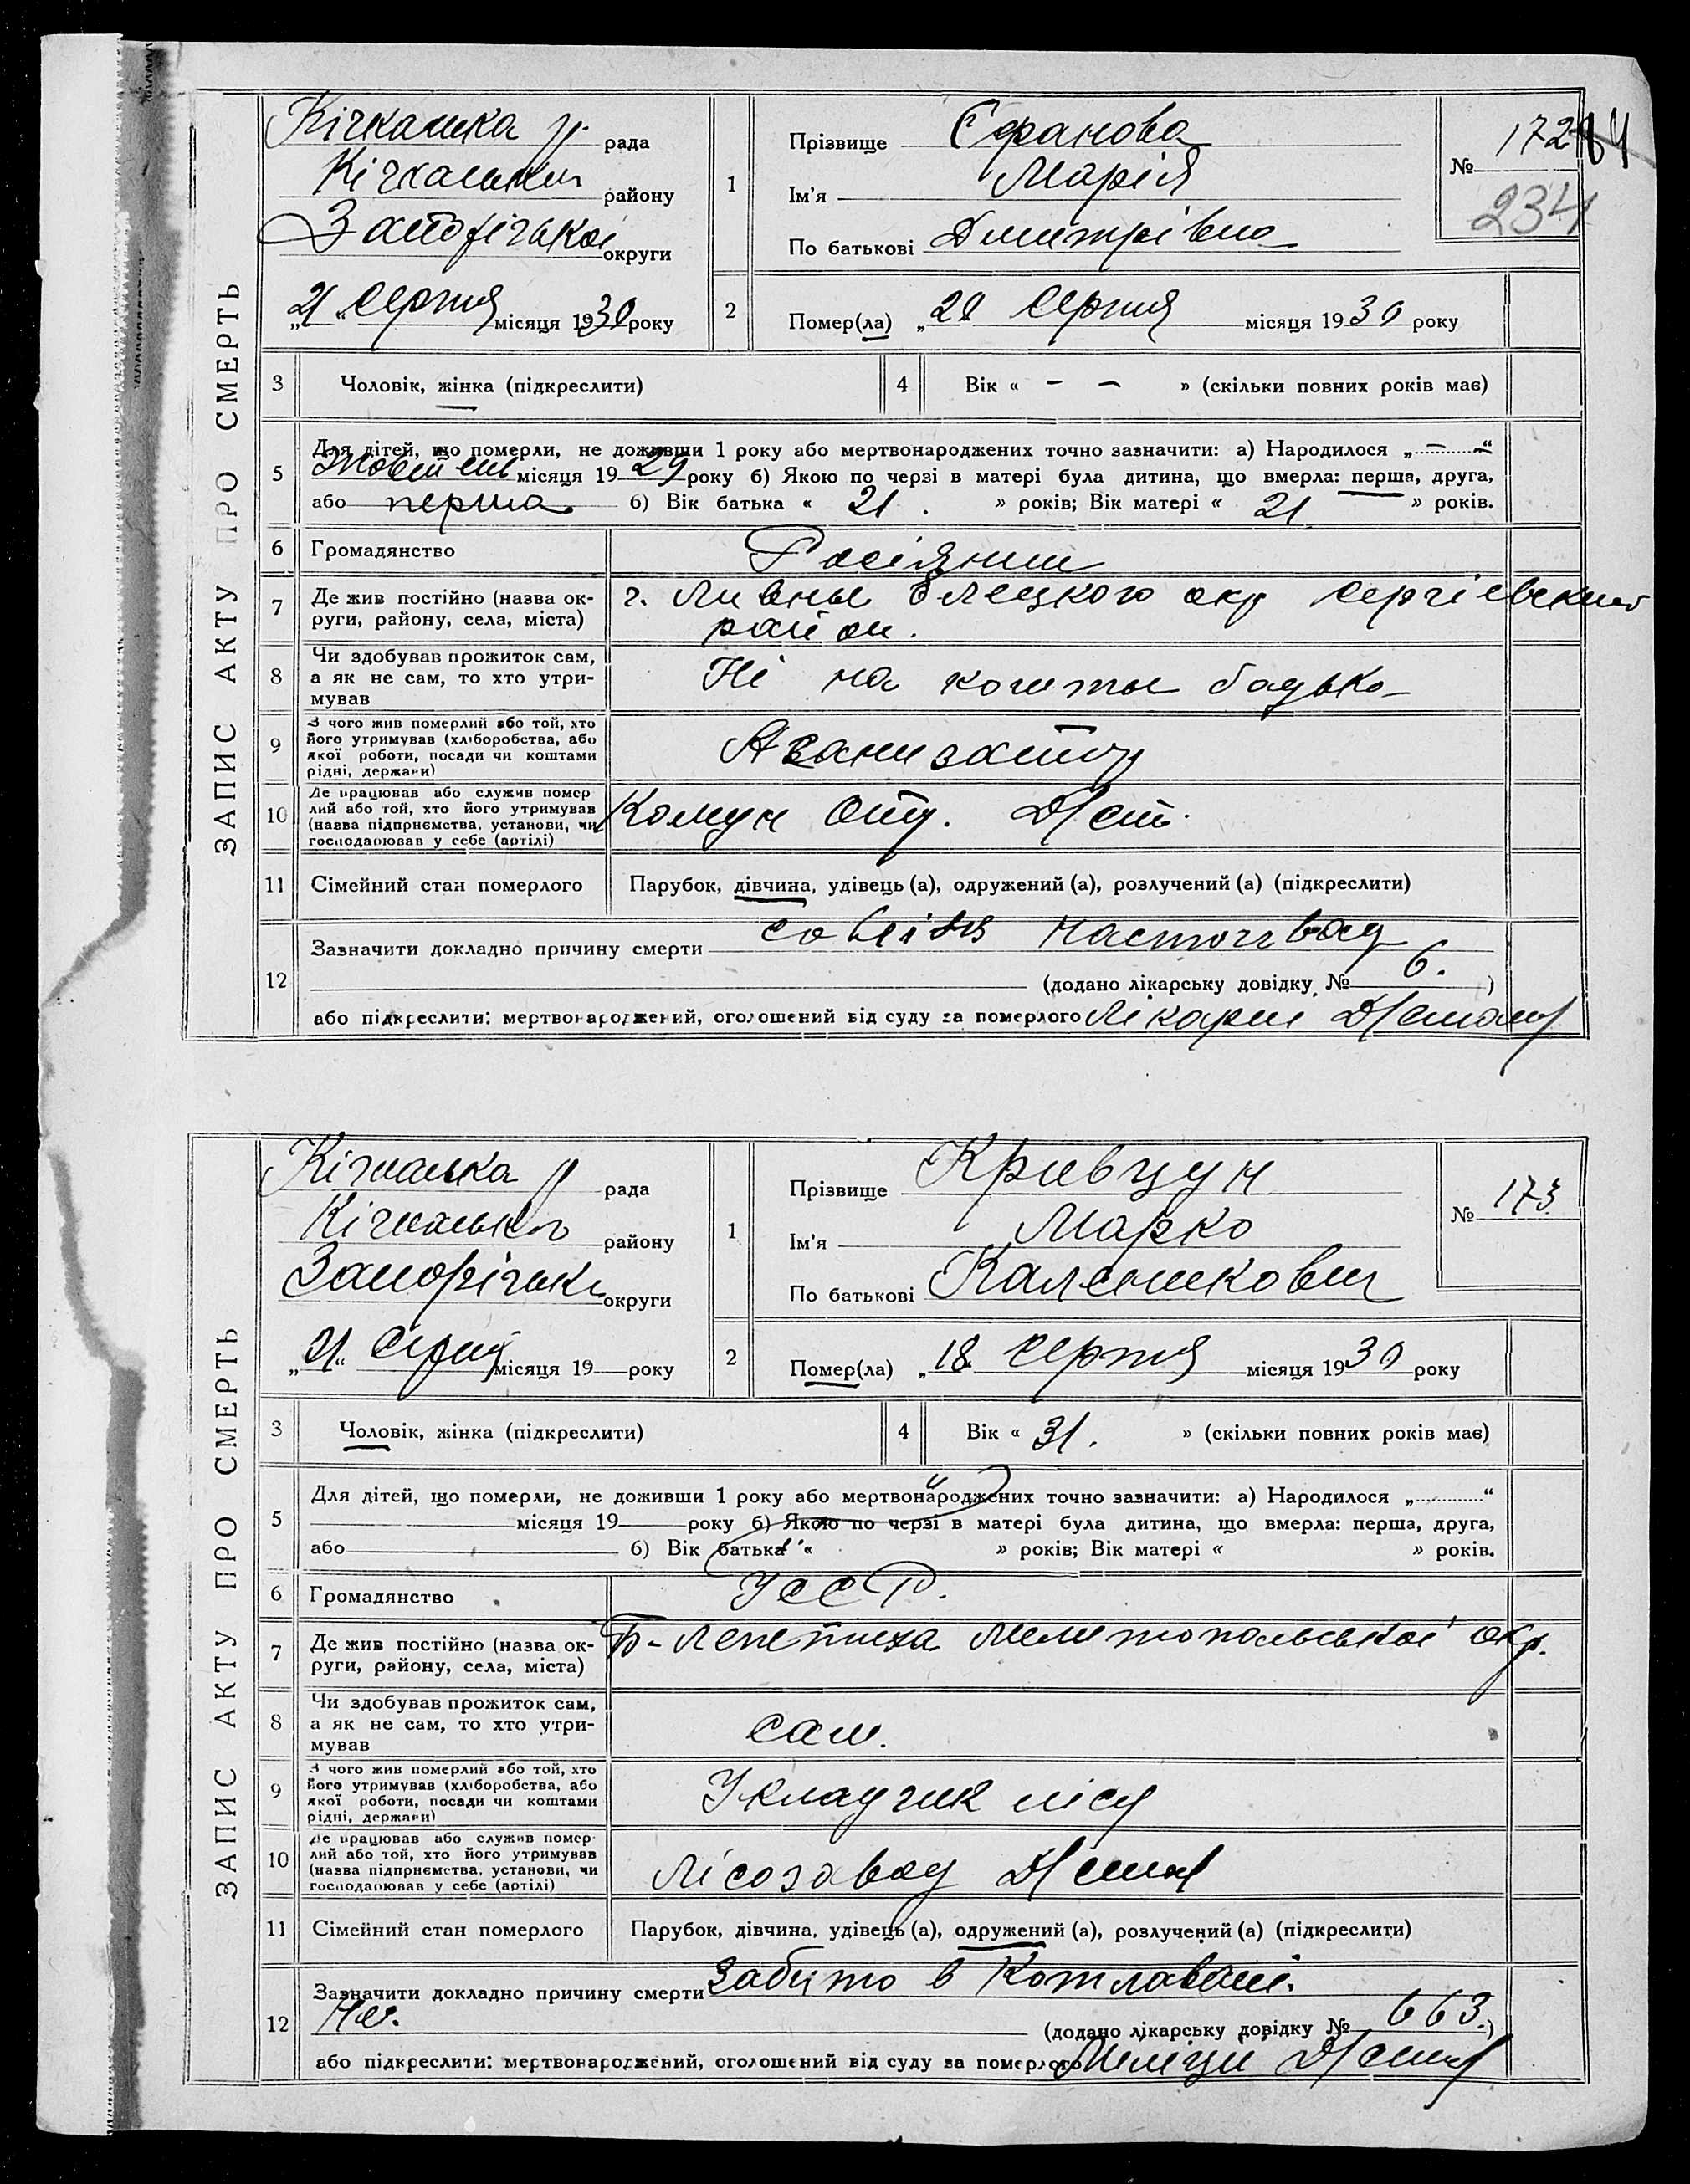 ЗАПИС АКТУ ПРО СМЕРТЬ
Кічкаська р. рада
Кічкаського району
Запорізької округи
„21“ Серпня місяця 1930 року
1
Прізвище Єфанова
Ім'я Марія
По батькові Дмитрівна
№ 172
234
2
Помер(ла) „20 Серпня місяця 1930 року
3 Чоловік, жінка (підкреслити)
4 Вік « - - » (скільки повних років має)
5 Для дітей, що померли, не доживши 1 року або мертвонароджених точно зазначити: а) Народилося „ — “
Жовтень місяця 1929 року б) Якою по черзі в матері була дитина, що вмерла: перша, друга,
або перша б) Вік батька « 21. » років; Вік матері « 21 » років.
6 Громадянство
Росіянин
7 Де жив постійно (назва ок-
руги, району, села, міста)
г. Ливны Елецкого окр Сергіевский
район.
8 Чи здобував прожиток сам,
а як не сам, то хто утри-
мував
Ні на кошты бадько-
9 З чого жив померлий або той, хто
його утримував (хліборобства, або
якої роботи, посади чи коштами
рідні, держави)
10 Де працював або служив помер-
лий або той, хто його утримував
(назва підприємства, установи, чи
господарював у себе (артілі)
Комун
11 Сімейний стан померлого
Парубок, дівчина, удівець (а), одружений (а), розлучений (а) (підкреслити)
12 Зазначити докладно причину смерти
(додано лікарську довідку № 6. )
або підкреслити: мертвонароджений, оголошений від суду за померлого Лікарні
ЗАПИС АКТУ ПРО СМЕРТЬ
Кічкаська р рада
Кічкаського району
Запорізької округи
„21“ Серпня місяця 19 — року
1
Прізвище Кривцун
Ім'я Марко
По батькові Каленикович
№ 173
2
Помер(ла) „18 Серпня місяця 1930 року
3 Чоловік, жінка (підкреслити)
4 Вік « 31. » (скільки повних років має)
5 Для дітей, що померли, не доживши 1 року або мертвонароджених точно зазначити: а) Народилося „ “
місяця 19 року б) Якою по черзі в матері була дитина, що вмерла: перша, друга,
або б) Вік батька « » років; Вік матері « » років.
6 Громадянство
УССР.
7 Де жив постійно (назва ок-
руги, району, села, міста)
Б-Лепетиха Мелитопольської окр.
8 Чи здобував прожиток сам,
а як не сам, то хто утри-
мував
сам.
9 З чого жив померлий або той, хто
його утримував (хліборобства, або
якої роботи, посади чи коштами
рідні, держави)
Укладчик лісу
10 Де працював або служив помер-
лий або той, хто його утримував
(назва підприємства, установи, чи
господарював у себе (артілі)
Лісозавод
11 Сімейний стан померлого
Парубок, дівчина, удівець (а), одружений (а), розлучений (а) (підкреслити)
12 Зазначити докладно причину смерти Забито в Котлавані.
(додано лікарську довідку № 663.)
або підкреслити: мертвонароджений, оголошений від суду за померлого Міліції